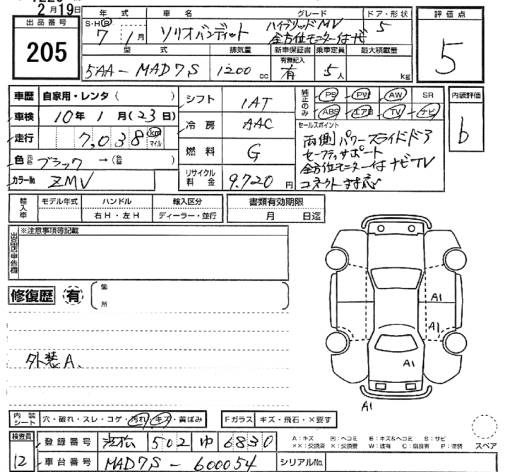 2月19日
出品番号
205
年式
S・H・R
7年1月
車名
ソリオバンディット
グレード
ハイブリッドMV
全方位モニター付ナビ
ドア・形状
5
評価点
5
型式
5AA-MAD7S
排気量
1200cc
新車保証書
有無記入
有
乗車定員
5人
最大積載量
kg
車歴
自家用・レンタ( )
車検
10年1月(23日)
走行
7,038km
マイル
色
ブラック→( )
カラーNo
ZMV
シフト
1AT
冷房
AAC
燃料
G
リサイクル料金
9,720円
純正のみ
PS
PW
AW
SR
ABS
エアB
TV
ナビ
セールスポイント
両側パワースライドドア
セーフティサポート
全方位モニター付ナビTV
コネクト対応
内装評価
b
輸入車
モデル年式
ハンドル
右H・左H
輸入区分
ディーラー・並行
書類有効期限
月 日迄
出品店申告欄
※注意事項等記載
修復歴
有
箇所
A1
A1
A1
A1
外装A、
内装シート
穴・破れ・スレ・コゲ・汚れ・キズ・黄ばみ
Fガラス
キズ・飛石・×要す
検査員
12
登録番号
浜松 502 ゆ 6830
車台番号
MAD7S-600054
シリアルNo.
スペア